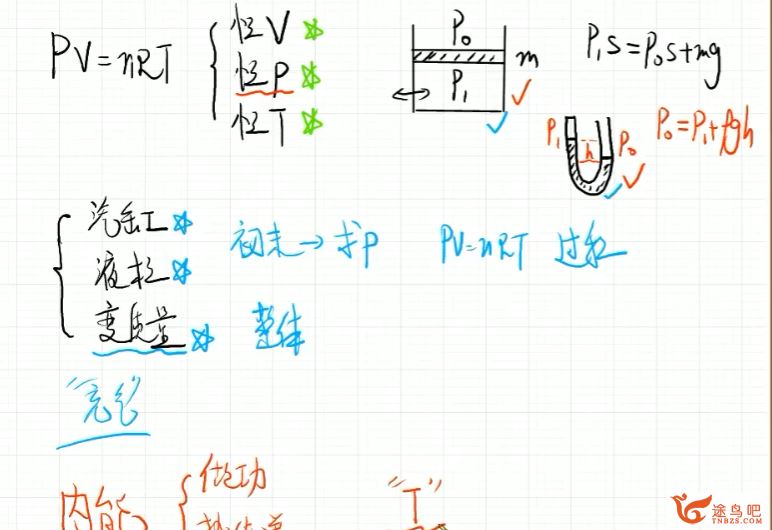 PV=nRT
恒V
恒P
恒T
P₀
P₁
m
P₁S=P₀S+mg
P₁
h
P₀
P₀=P₁+ρgh
汽缸
液柱
变质量
初末→求P
PV=nRT 过程
整体
"充气"
内能
做功
热传递
"T"
途鸟吧
TNBZS.COM